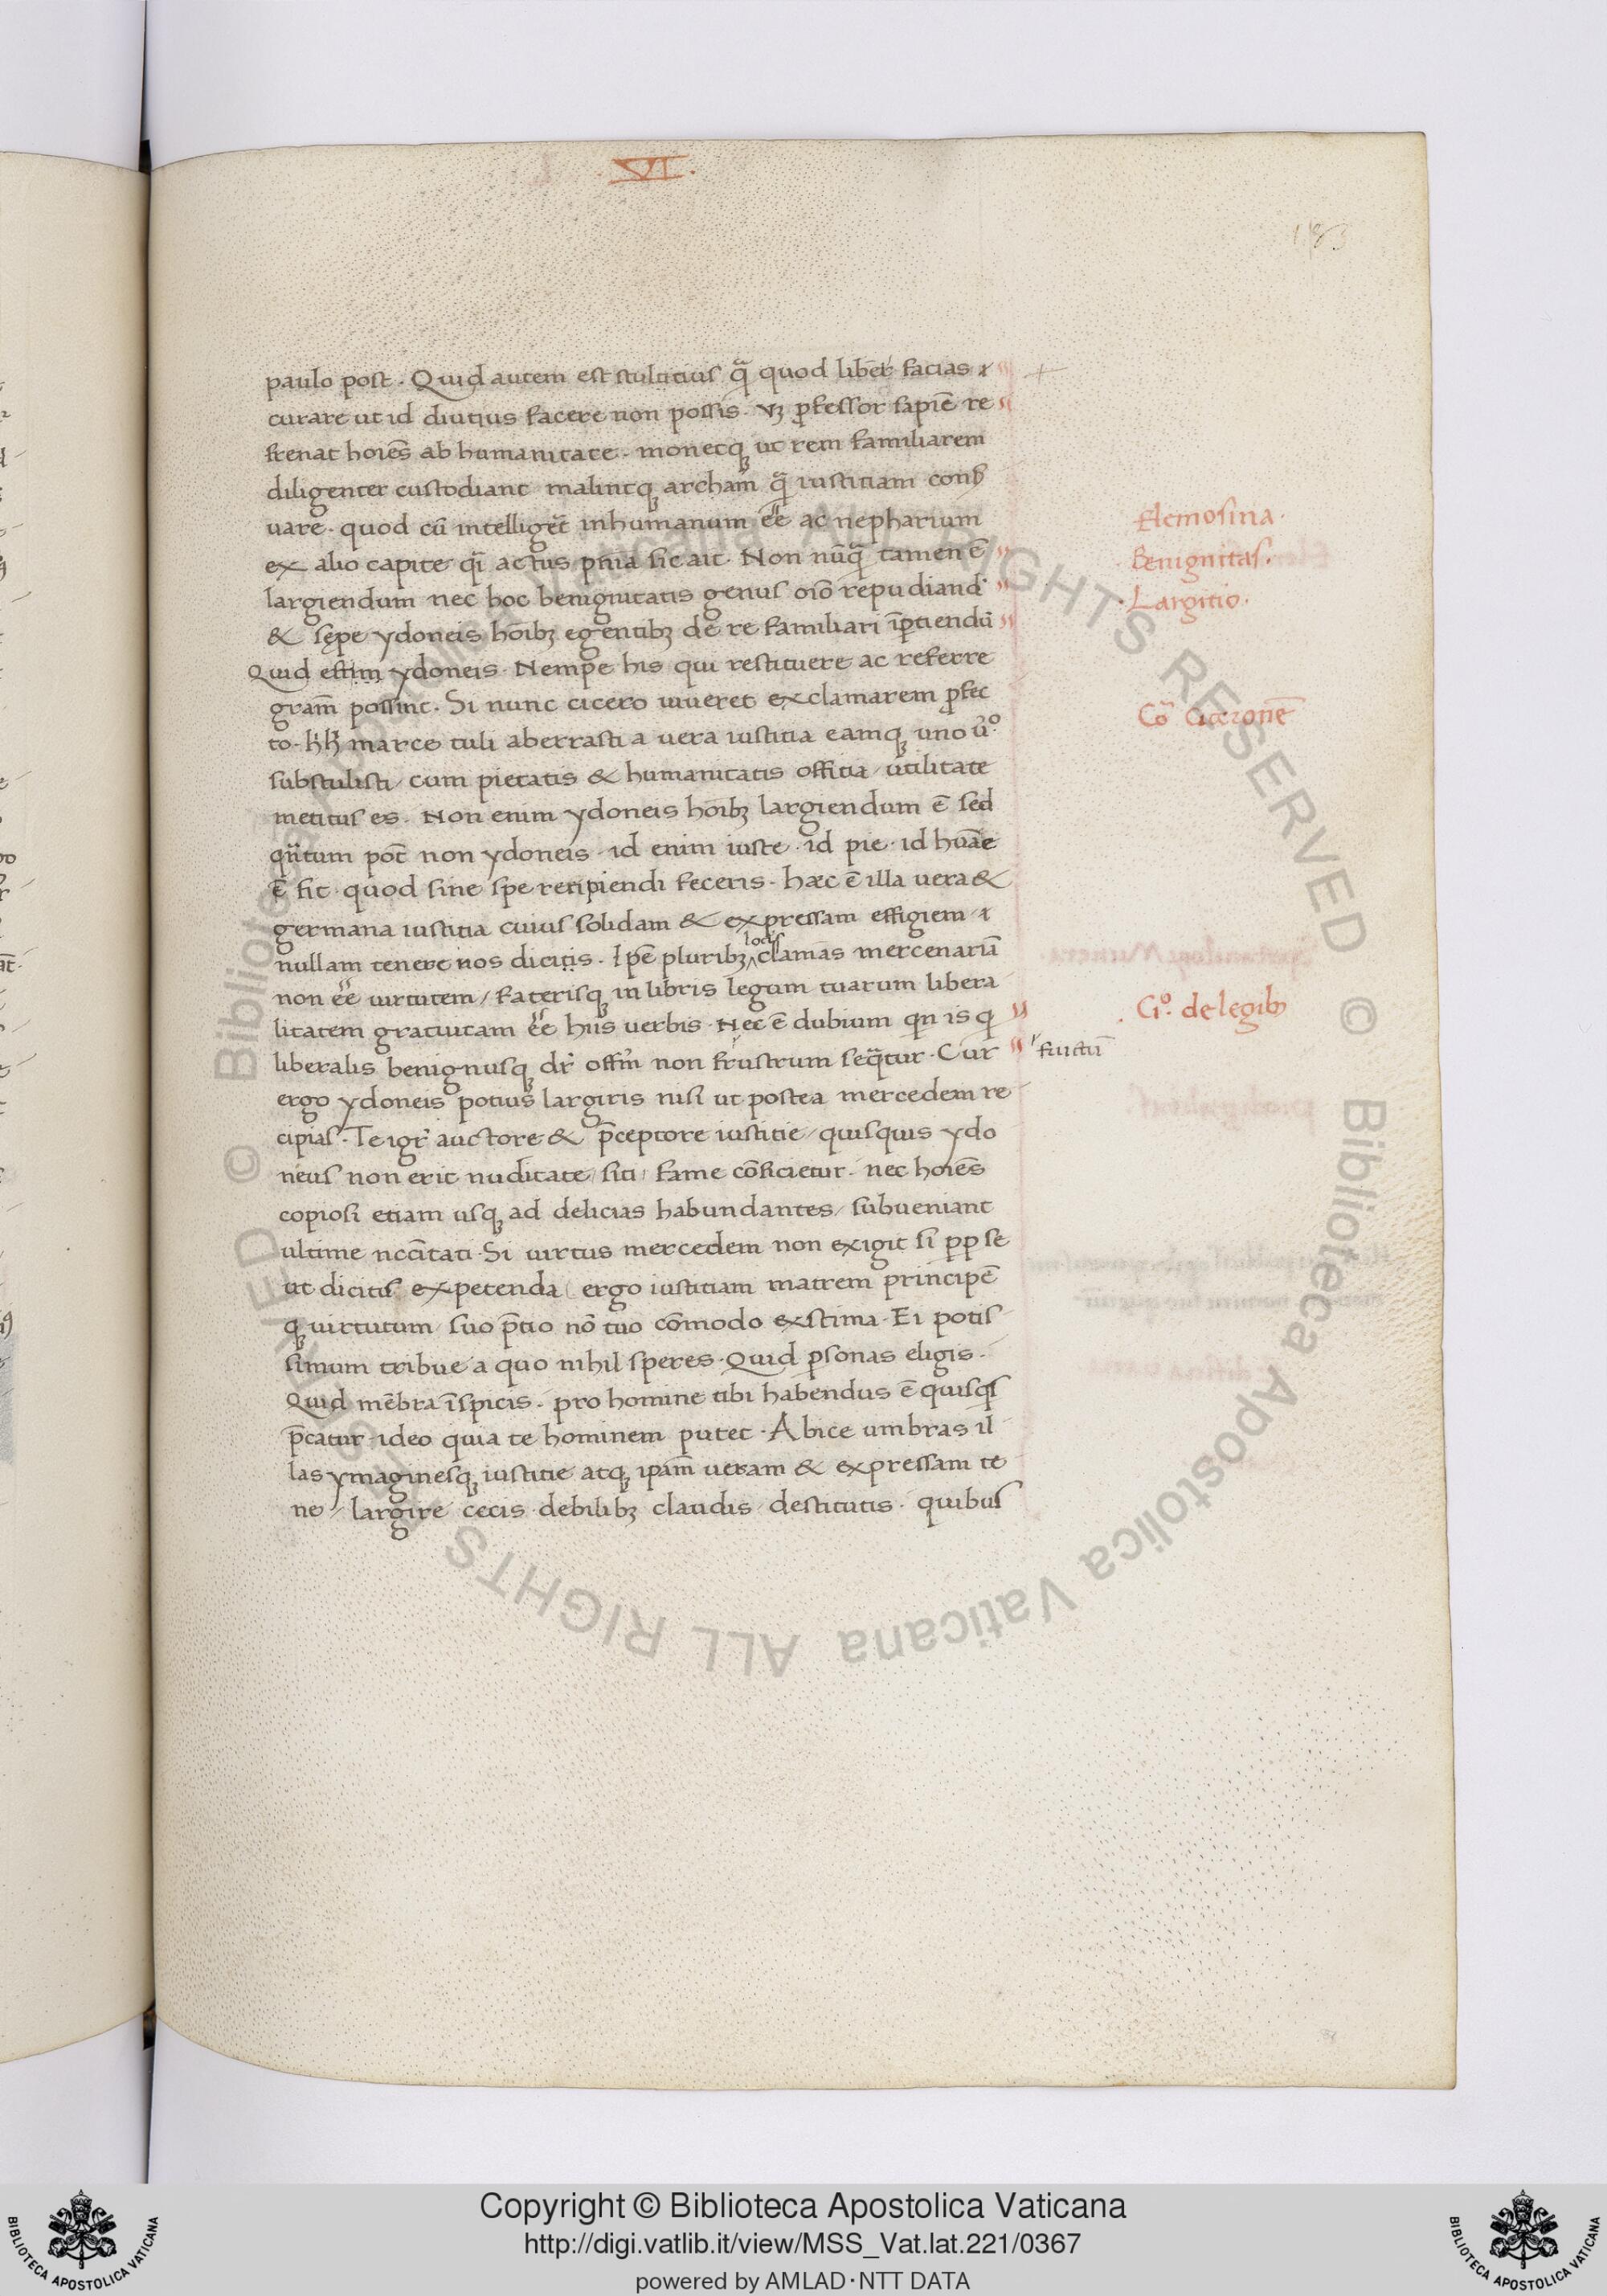 ·VI·
183
paulo post . Quid autem est stultitius q̃ quod libēt facias ⁊
curare ut id diutius facere non possis . vꝫ ꝓfessor sapiē re
frenat hoīes ab humanitate . monetqꝫ ut rem familiarem
diligenter custodiant malintqꝫ archam q̃ iustitiam
vare . quod cū intelligēt inhumanum eē ac nepharium
ex alio capite q̄i actus pn̄ia sic ait . Non nūq̃ tamen ē
largiendum nec hoc benignitatis genus oīo repudiand̄
& sępe ydoneis hoībꝫ egentibꝫ de re familiari īptiendū
Quid ydoneis . Nempe his qui restituere ac referre
gram̄ possint . Si nunc cicero viveret exclamarem ꝓfec
to . marce tuli aberrasti a vera iustitia eamqꝫ uno v̄o.
substulisti / cum pietatis & humanitatis offitia / utilitate
metitus es . Non enim ydoneis hoībꝫ largiendum ē sed
qn̄tum pōt non ydoneis . id enim iuste . id pie . id hūāe
ē fit . quod sine spe recipiendi feceris . hæc ē illa vera &
germana iustitia cuius solidam & expressam effigiem / ⁊
nullam tenere nos dicitis . Ipē pluribꝫ locis clamas mercenariā
non eē virtutem / faterisqꝫ in libris legum tuarum libera
litatem gratuitam eē hiis verbis . Nec ē dubium qn is q̇
liberalis benignusqꝫ dr̄ offm̄ non frustrum seq̃tur . Cur
ergo ydoneis potius largiris nisi ut postea mercedem re
cipias . Te igr̄ auctore & p̄ceptore iustitie / quisquis ydo
neus non erit nuditate / siti / fame cōficietur . nec hoīes
copiosi etiam usqꝫ ad delicias habundantes / subveniant
ultime nccītati . Si virtus mercedem non exigit si ꝓp se
ut dicitis expetenda ergo iustitiam matrem principē
qꝫ virtutum / suo p̄tio nō tuo cōmodo exstima . Ei potis
simum tribue a quo nihil speres . Quid psonas eligis .
Quid mēbra īspicis . pro homine tibi habendus ē quisq̇s
p̄catur . ideo quia te hominem putet . Abice umbras il
las ymaginesqꝫ iustitie atqꝫ ipam̄ veram & expressam te
ne / largire cecis debilibꝫ claudis / destitutis . quibus
Elemosina .
Benignitas .
· Largitio .
Cō Ciceronē
. Ci⁰. de legibꝫ
fructū
Copyright © Biblioteca Apostolica Vaticana
http://digi.vatlib.it/view/MSS_Vat.lat.221/0367
powered by AMLAD·NTT DATA
BIBLIOTECA APOSTOLICA VATICANA
BIBLIOTECA APOSTOLICA VATICANA
© Biblioteca Apostolica Vaticana ALL RIGHTS RESERVED © Biblioteca Apostolica Vaticana ALL RIGHTS RESERVED